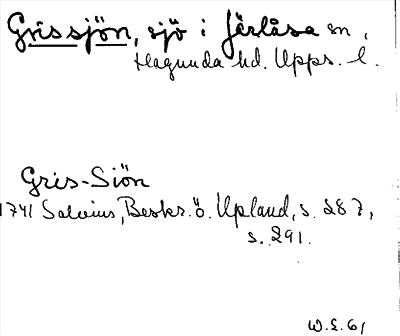 Grissjön, sjö i Järlåsa sn,
Hagunda hd. Upps. l.
Gris-Siön
1741 Salvius, Beskr. ö. Upland, s. 287,
s. 291.
W.E. 61